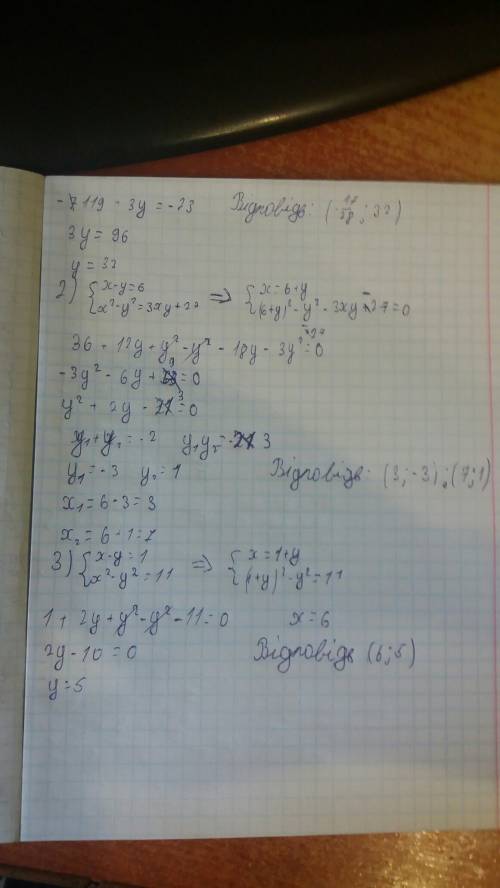 -119 - 3y = -23 Відповідь: (-17/38; 32)
3y = 96
y = 32
2) { x-y=6 => { x=6+y
x²-y²=3xy+27 (6+y)²-y²-3xy-27=0
36+12y+y²-y²-18y-3y²-27=0
-3y²-6y+9=0
y²+2y-3=0
y₁+y₂=-2 y₁y₂=-3
y₁=-3 y₂=1 Відповідь: (3;-3);(7;1)
x₁=6-3=3
x₂=6+1=7
3) { x-y=1 => { x=1+y
x²-y²=11 (1+y)²-y²=11
1+2y+y²-y²-11=0 x=6
2y-10=0 Відповідь (6;5)
y=5